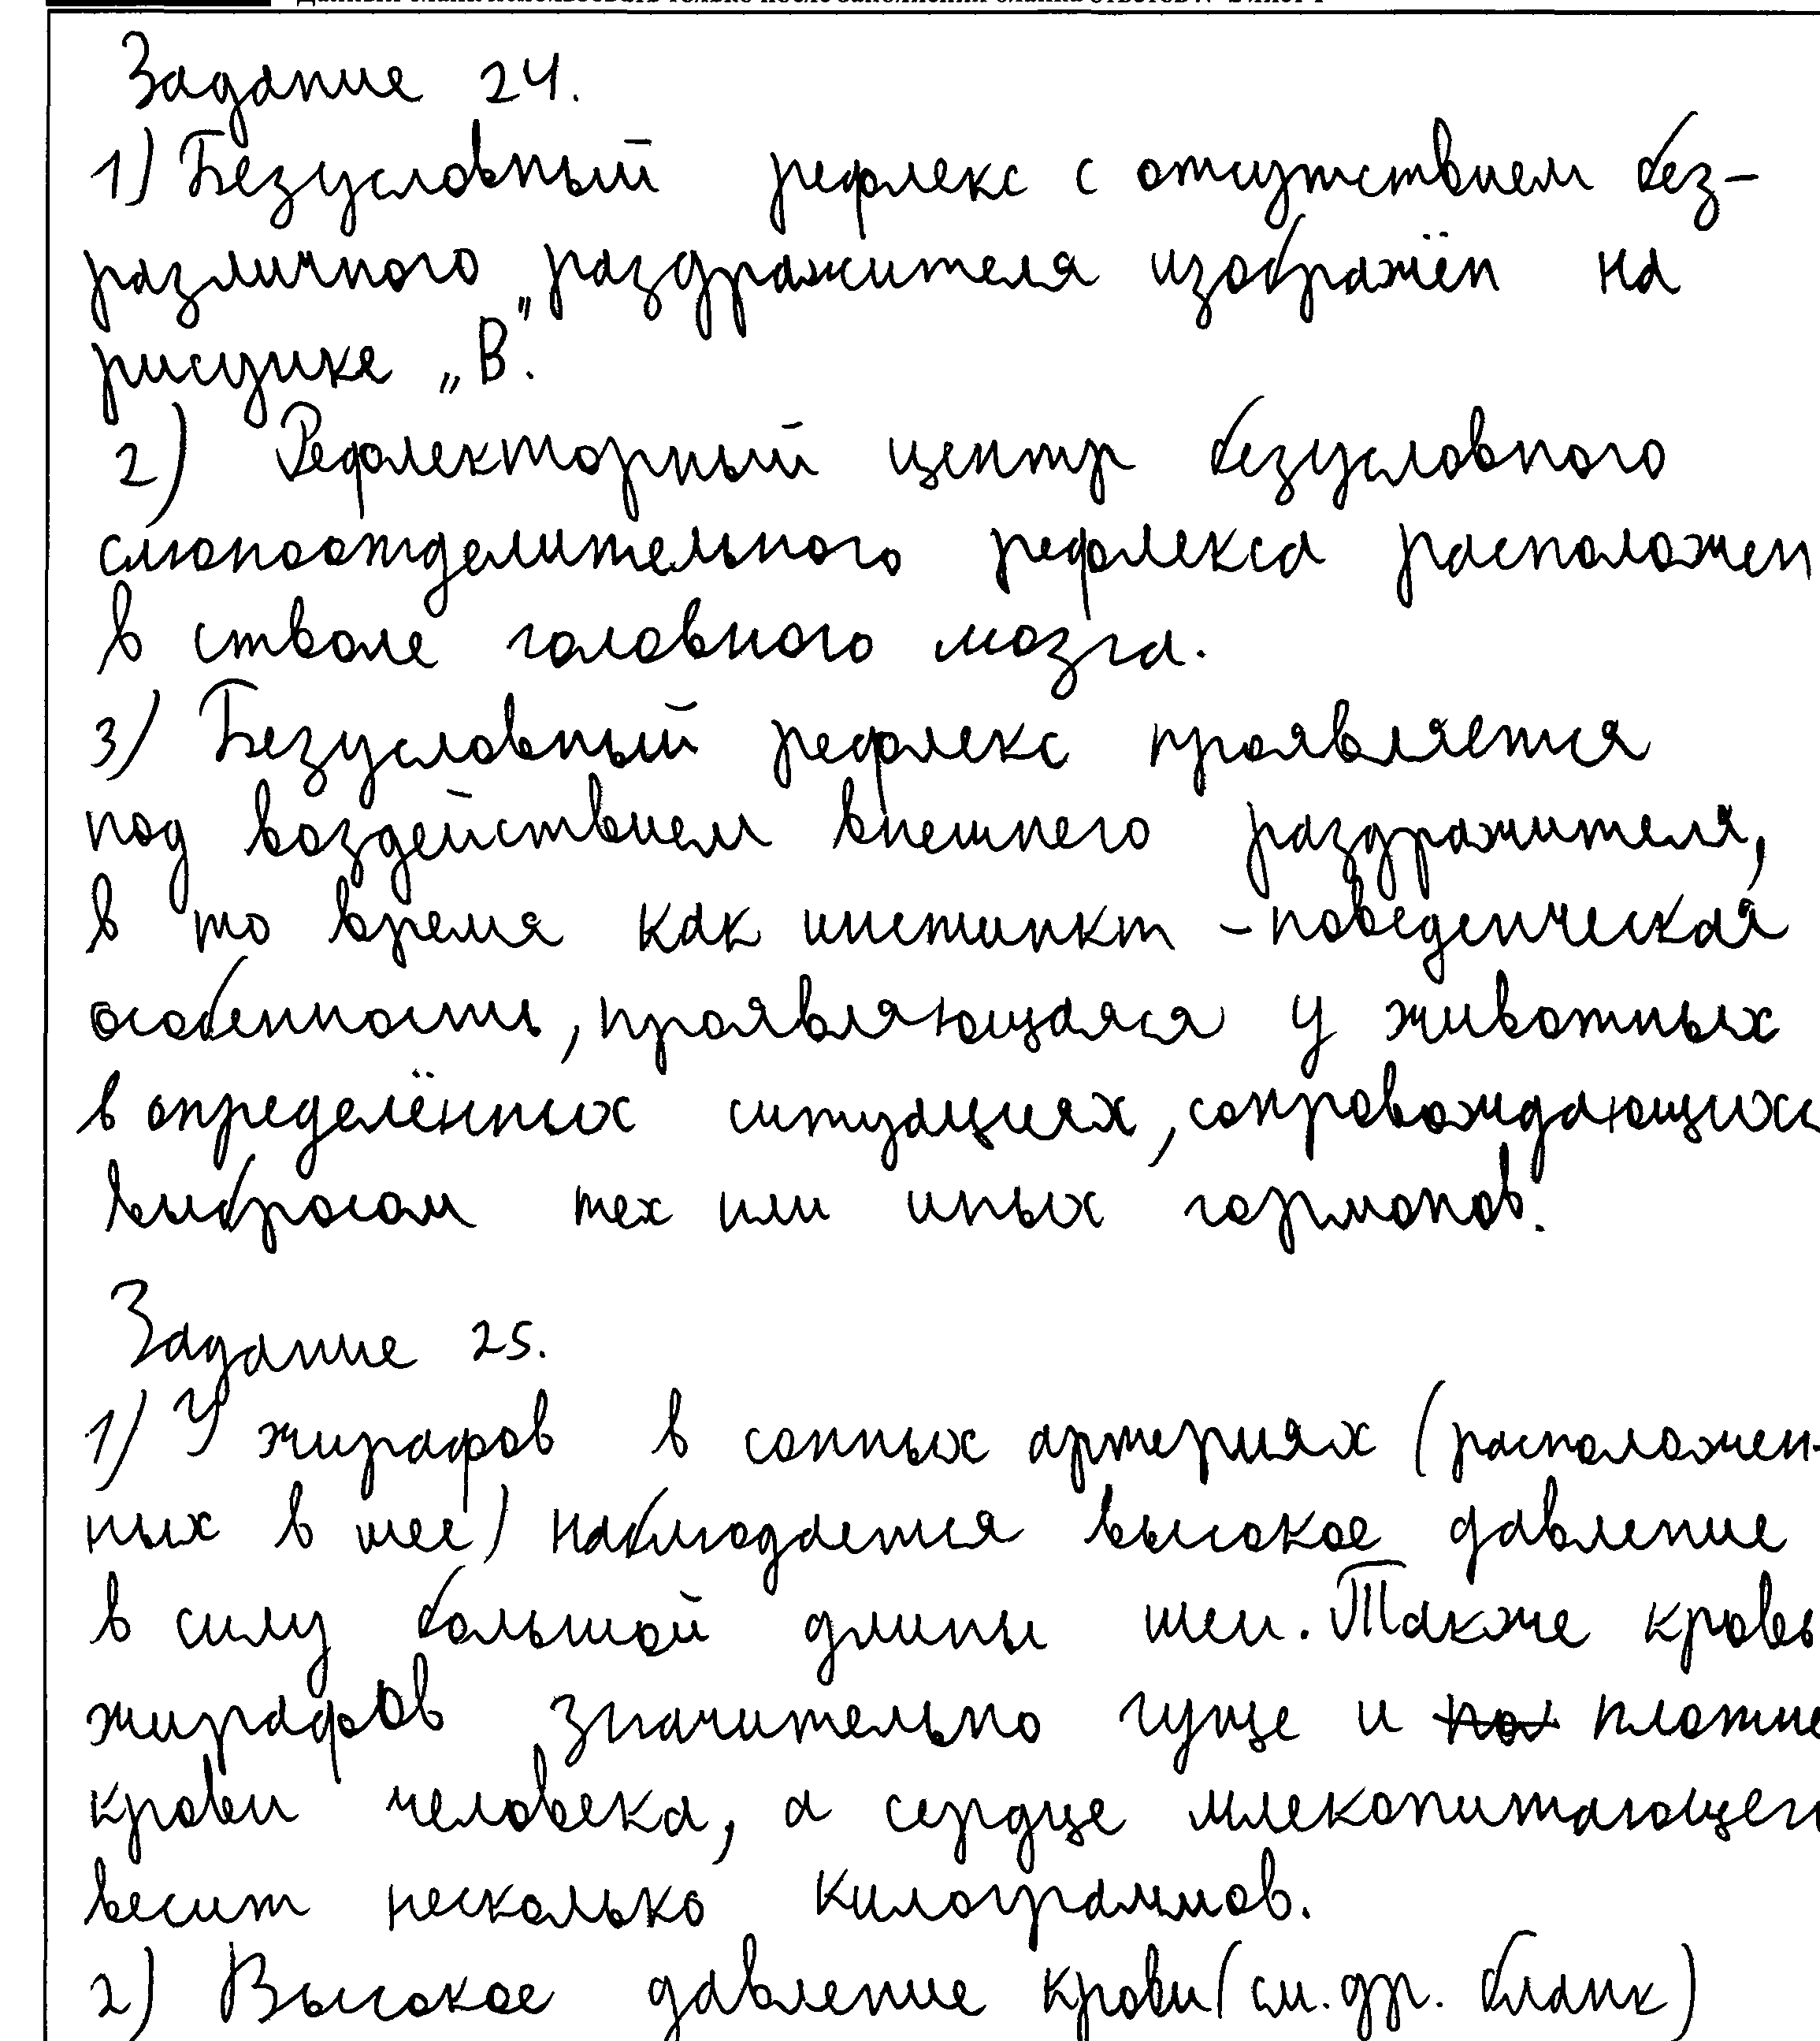 Задание 24.
1) Безусловный рефлекс с отсутствием без-
различного раздражителя изображён на
рисунке „В".
2) Рефлекторный центр безусловного
слюноотделительного рефлекса расположен
в стволе головного мозга.
3) Безусловный рефлекс проявляется
под воздействием внешнего раздражителя,
в то время как инстинкт - поведенческая
особенность, проявляющаяся у животных
в определённых ситуациях, сопровождающихс
выбросом тех или иных гормонов.
Задание 25.
1) У жирафов в сонных артериях (расположен-
ных в шее) наблюдается высокое давление
в силу большой длины шеи. Также кровь
жирафов значительно гуще и плотне
крови человека, а сердце млекопитающего
весит несколько килограммов.
2) Высокое давление крови (см. др. бланк)